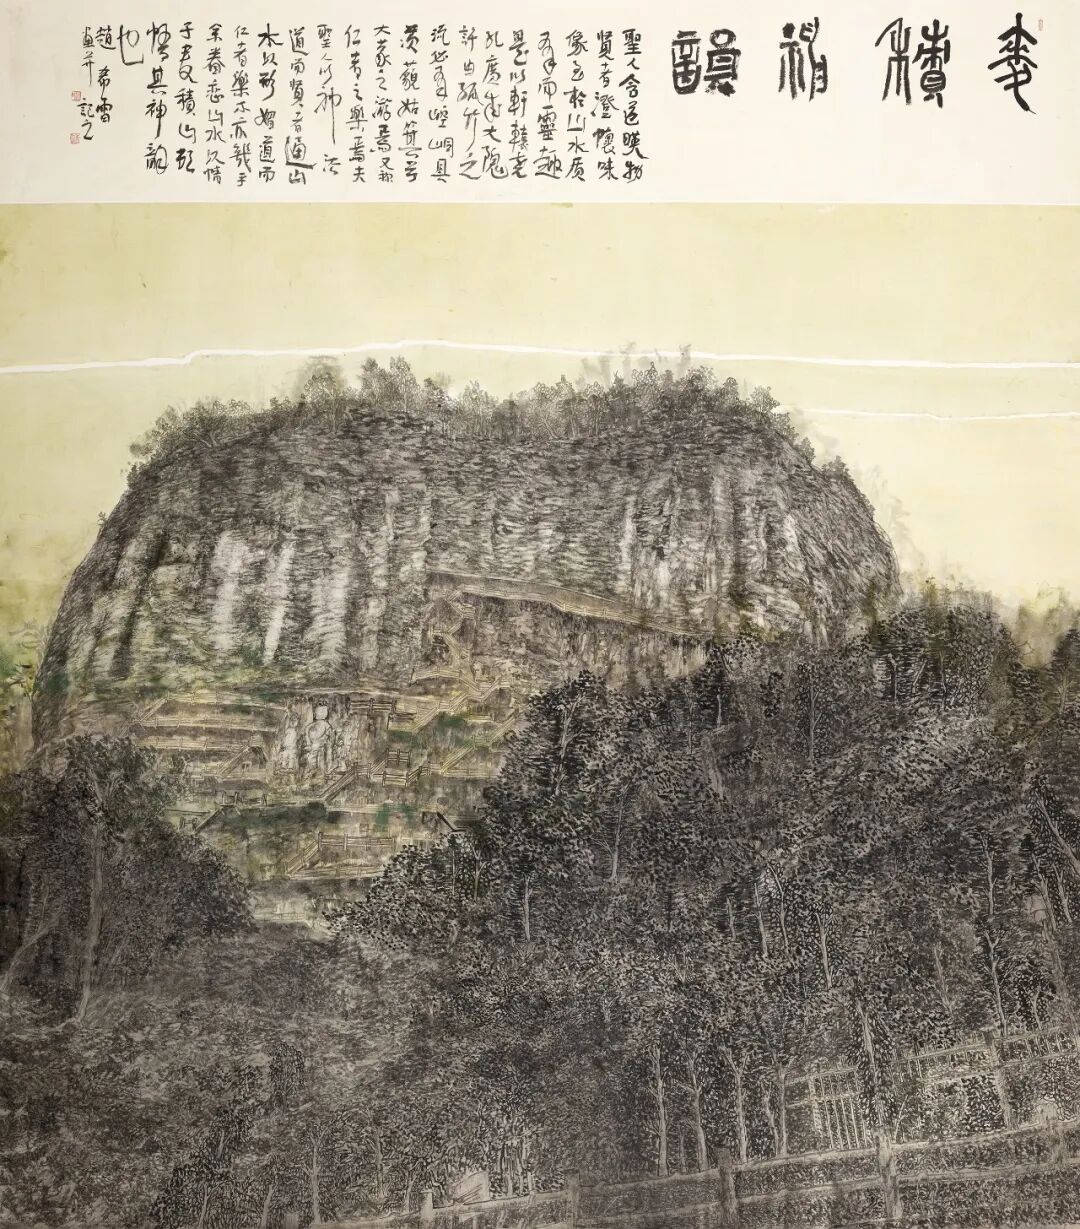 麥積神韻
聖人含道暎物
賢者澄懷味
像至於山水质
有而靈趣
是以軒轅堯
孔廣成大隗
許由孤竹之
流必有崆峒具
茨藐姑箕首
大蒙之游焉又称
仁者之樂焉夫
聖人以神法
道而賢者通山
水以形媚道而
仁者樂不亦幾乎
余眷恋山水久情
于麦積山頭
悟其神韻
也
趙希雪
画并記之